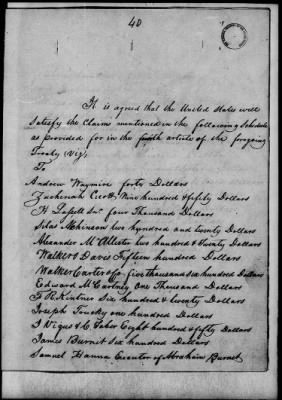 40
It is agreed that the United States will
satisfy the Claims mentioned in the following Schedule
as provided for in the fourth article of the foregoing
Treaty (Viz)
To
Andrew Waymire forty Dollars
Zacheriah Cicott, Nine hundred & fifty Dollars
H Lasell Snr four Thousand Dollars
Silas Atchinson two hundred and twenty Dollars
Alexander McAllister two hundred & twenty Dollars
Walker & Davis Fifteen hundred Dollars
Walker Carter & Co. five thousand six hundred Dollars
Edward McCartney One Thousand Dollars
F R Kintner Six hundred & twenty Dollars
Joseph Trucky one hundred Dollars
J Vigus & C Taber Eight hundred & fifty Dollars
James Burnit Six hundred Dollars
Samuel Hanna Executor of Abraham Burnet